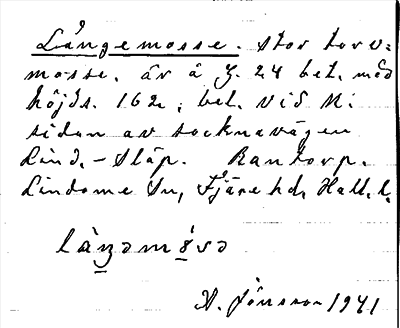 Långemosse. Stor torv-
mosse, är å g. 24 bet. med
höjds. 162, bel. vid N:
sidan av socknavägen
Lind. - Släp. Rantorp.
Lindome Sn, Fjäre hd, Hall. l.
làŋəmósə
A. Jönsson 1941